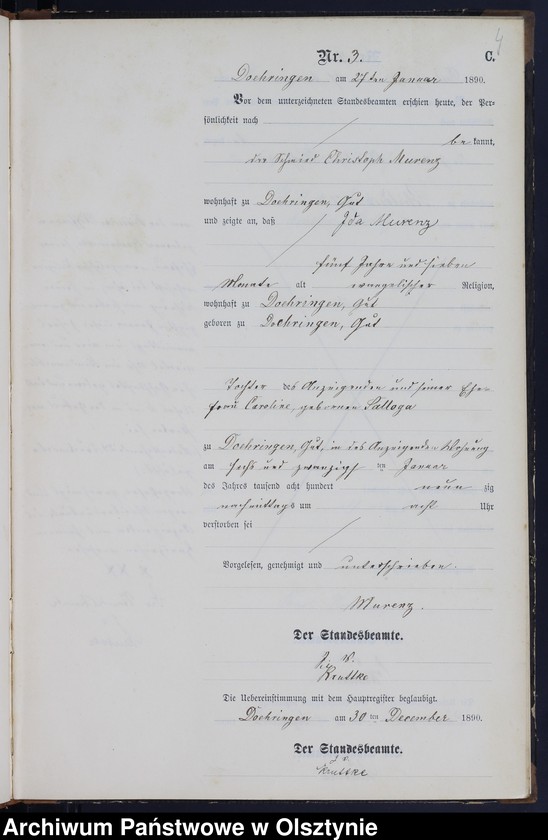 4
Nr. 3. C.
Doehringen am 27ten Januar 1890.
Vor dem unterzeichneten Standesbeamten erschien heute, der Per-
sönlichkeit nach
bekannt,
der Schmied Christoph Murenz
wohnhaft zu Doehringen, Gut
und zeigte an, daß Ida Murenz
fünf Jahre und sieben
Monate alt evangelischer Religion,
wohnhaft zu Doehringen, Gut
geboren zu Doehringen, Gut
Tochter des Anzeigenden und seiner Ehe-
frau Caroline, geborenen Salloga
zu Doehringen, Gut, in des Anzeigenden Wohnung
am sechs und zwanzigsten Januar
des Jahres tausend acht hundert neunzig
nachmittags um acht Uhr
verstorben sei
Vorgelesen, genehmigt und unterschrieben.
Murenz.
Der Standesbeamte.
J. V.
Kruttke
Die Uebereinstimmung mit dem Hauptregister beglaubigt.
Doehringen am 30ten December 1890.
Der Standesbeamte.
J. V.
Kruttke
Archiwum Państwowe w Olsztynie